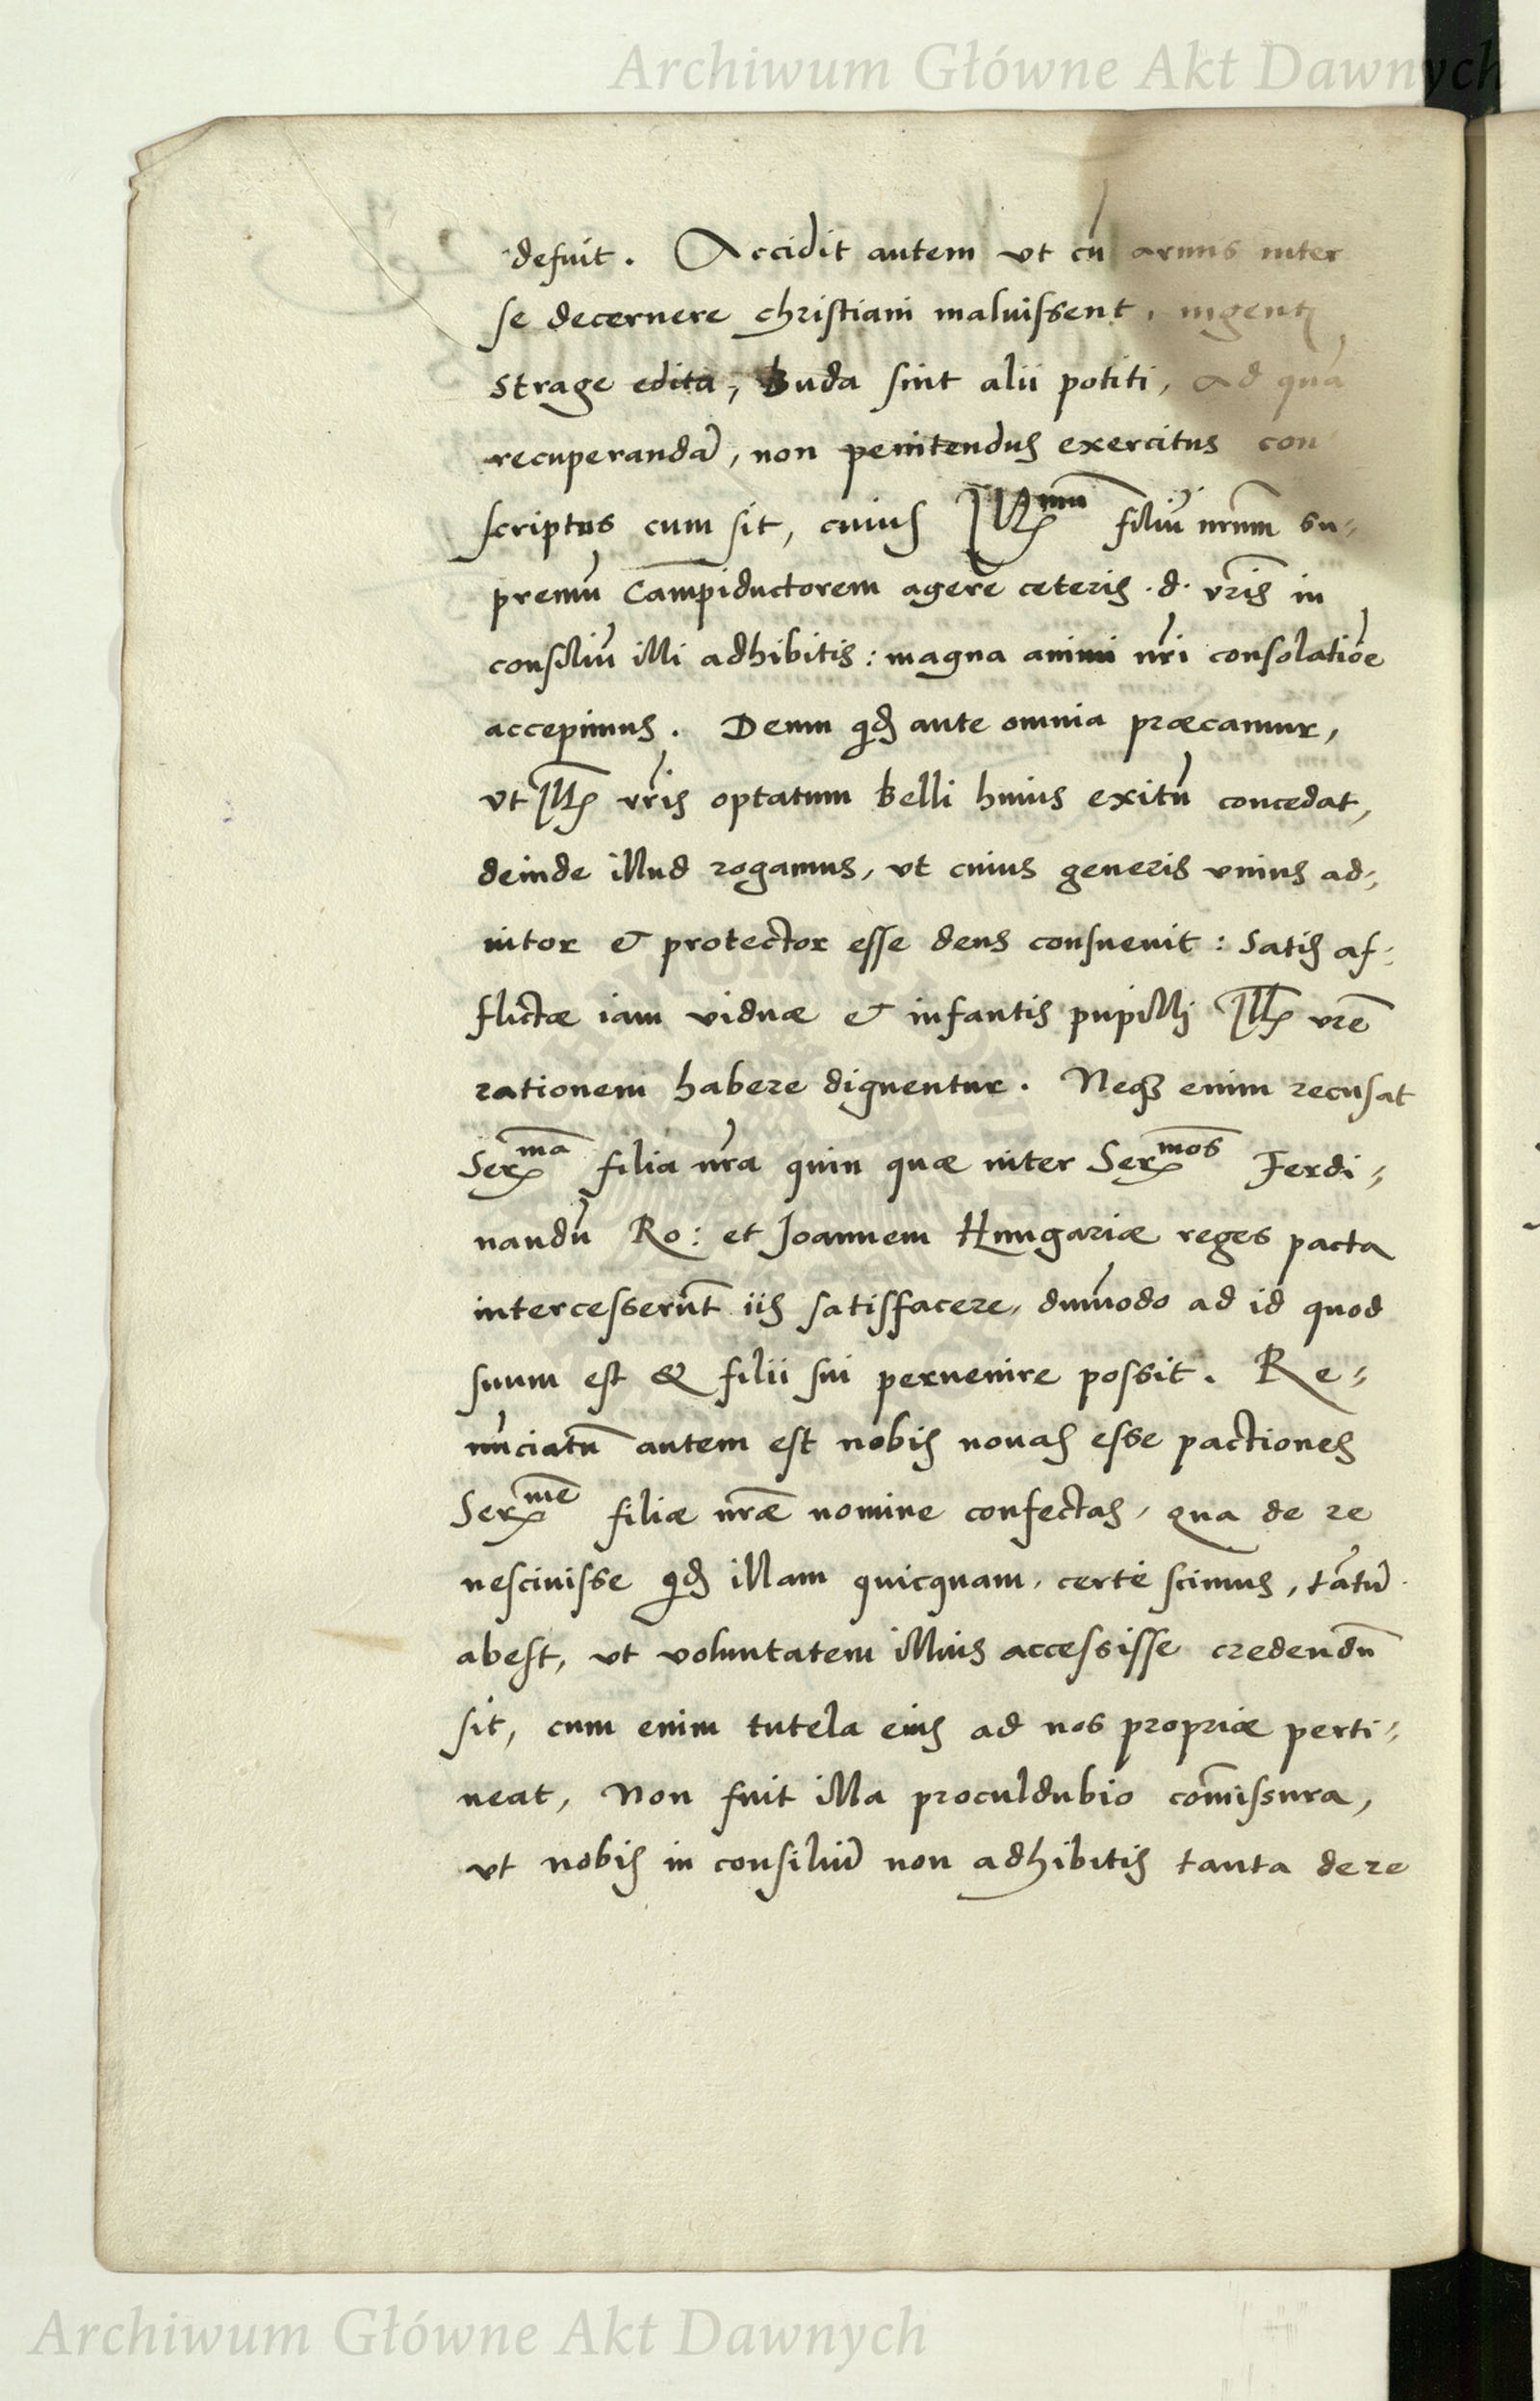 Archiwum Główne Akt Dawnych
defuit. Accidit autem vt cū armis inter
se decernere christiani maluissent, ingenti
strage edita, Buda sint alii potiti, ad quā
recuperandā, non penitendus exercitus con
scriptus cum sit, cuius Illmū filiū nrūm su-
premū Campiductorem agere ceteris .d. vris in
consiliū illi adhibitis: magna animi nri consolatiōe
accepimus. Deum qd ante omnia præcamur,
vt Ill vris optatum belli huius exitū concedat,
deinde illud rogamus, vt cuius generis vnius ad-
iutor & protector esse deus consueuit: Satis af-
flictæ iam viduæ & infantis pupilli Ill vrē
rationem habere dignentur. Neqȝ enim recusat
Serma filia nra quin quæ inter Sermos Ferdi-
nandū Ro: et Joannem Hungariæ reges pacta
intercesserūt iis satisfacere, dūmodo ad id quod
suum est & filii sui peruenire possit. Re-
nūciatū autem est nobis nouas esse pactiones
Serme filiæ nræ nomine confectas, qua de re
nesciuisse qd illam quicquam, certe scimus, tātū
abest, vt voluntatem illius accessisse credendū
sit, cum enim tutela eius ad nos propriæ perti-
neat, Non fuit illa proculdubio comissura,
vt nobis in consiliū non adhibitis tanta de re
Archiwum Główne Akt Dawnych